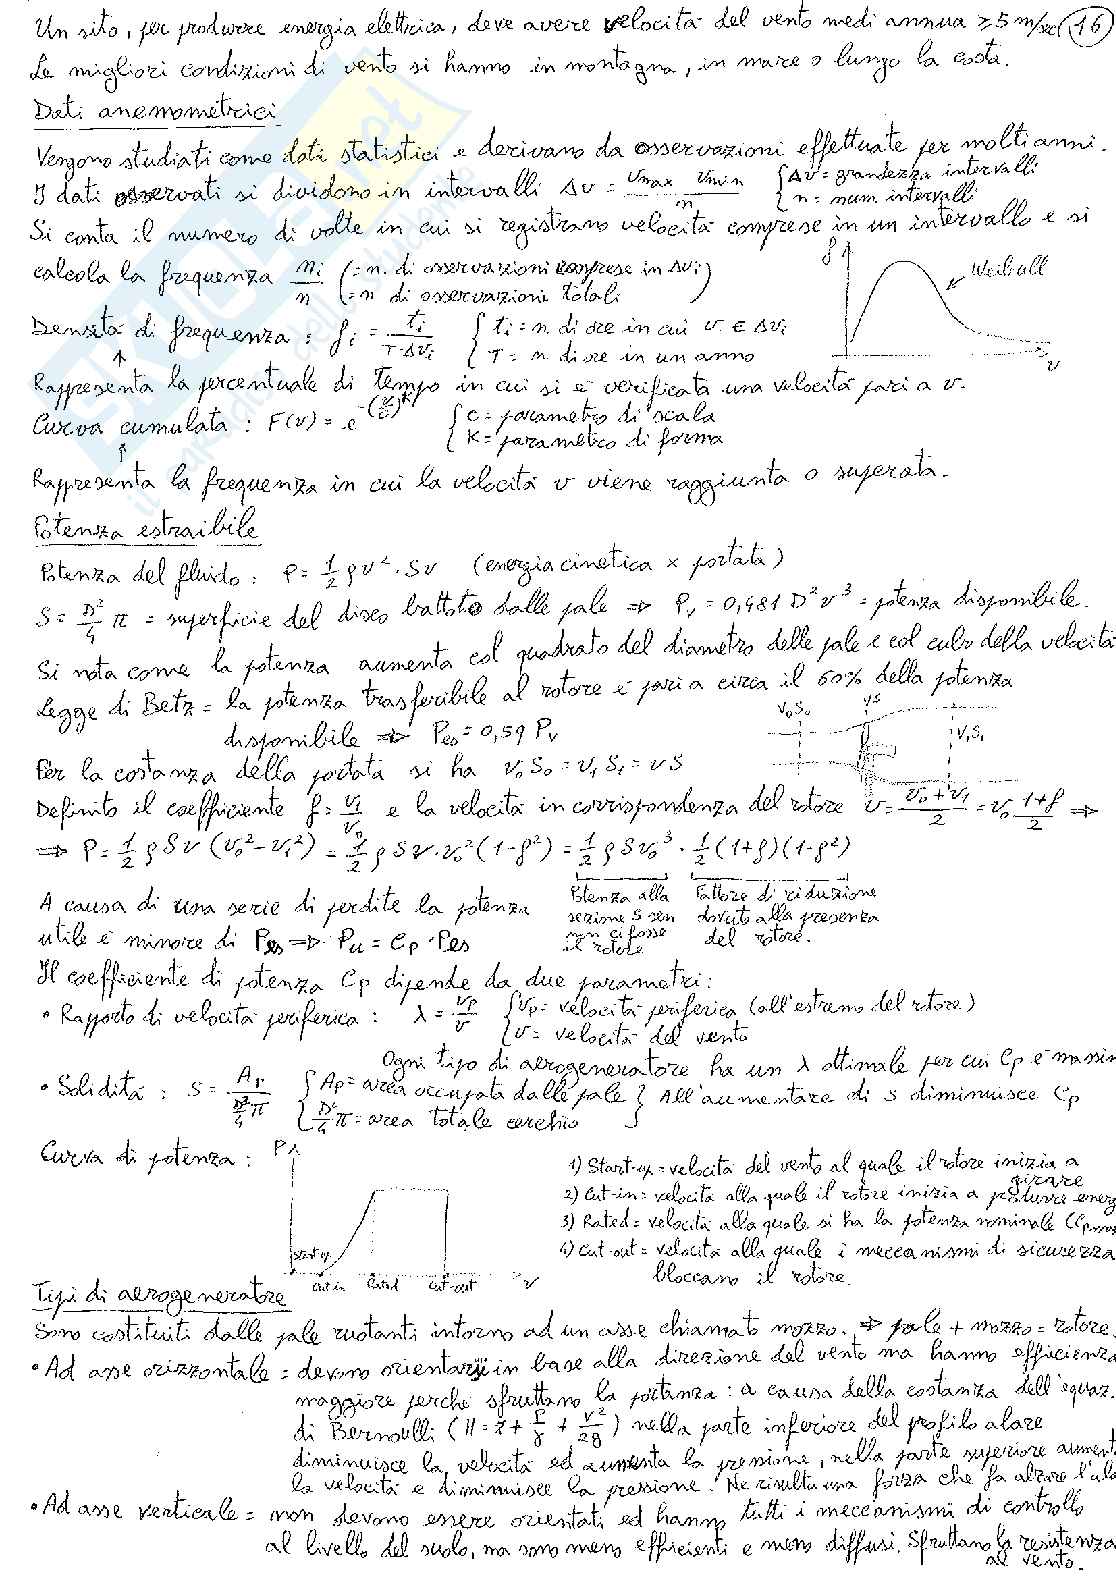 Un sito, per produrre energia elettrica, deve avere velocità del vento medi annua ≥5 m/sec (16)
Le migliori condizioni di vento si hanno in montagna, in mare o lungo la costa.
Dati anemometrici
Vengono studiati come dati statistici e derivano da osservazioni effettuate per molti anni.
I dati osservati si dividono in intervalli Δv = (vmax vmin)/n { Δv = grandezza intervalli
n = num. intervalli
Si conta il numero di volte in cui si registrano velocità comprese in un intervallo e si
calcola la frequenza ni/n (= n. di osservazioni comprese in Δvi)
(= n di osservazioni totali)
f Weibull v
Densità di frequenza : fi = ti/(T·Δvi) { ti = n di ore in cui v ∈ Δvi
T = n di ore in un anno
Rappresenta la percentuale di tempo in cui si è verificata una velocità pari a v.
Curva cumulata : F(v) = e^-(v/c)^k { c = parametro di scala
K = parametro di forma
Rappresenta la frequenza in cui la velocità v viene raggiunta o superata.
Potenza estraibile
Potenza del fluido : P = 1/2 ρv² · Sv (energia cinetica × portata)
S = D²/4 π = superficie del disco battuto dalle pale ⇒ Pv = 0,481 D² v³ = potenza disponibile.
Si nota come la potenza aumenta col quadrato del diametro delle pale e col cubo della velocità
Legge di Betz = la potenza trasferibile al rotore è pari a circa il 60% della potenza
disponibile ⇒ Pes = 0,59 Pv
v₀S₀ vS v₁S₁
Per la costanza della portata si ha v₀S₀ = v₁S₁ = vS
Definito il coefficiente f = v₁/v₀ e la velocità in corrispondenza del rotore v = (v₀+v₁)/2 = v₀ (1+f)/2 ⇒
⇒ P = 1/2 ρSv (v₀²-v₁²) = 1/2 ρSv·v₀²(1-f²) = 1/2 ρSv₀³ · 1/2 (1+f)(1-f²)
Potenza alla sezione S se non ci fosse il rotore
Fattore di riduzione dovuto alla presenza del rotore.
A causa di una serie di perdite la potenza
utile è minore di Pes ⇒ Pu = Cp · Pes
Il coefficiente di potenza Cp dipende da due parametri:
• Rapporto di velocità periferica : λ = vp/v { vp = velocità periferica (all'estremo del rotore)
v = velocità del vento
Ogni tipo di aerogeneratore ha un λ ottimale per cui Cp è massim
• Solidità : S = Ap/(D²/4 π) { Ap = area occupata dalle pale } All'aumentare di S diminuisce Cp
D²/4 π = area totale cerchio
Curva di potenza :
P start-up cut-in rated cut-out v
1) Start-up = velocità del vento al quale il rotore inizia a girare
2) Cut-in = velocità alla quale il rotore inizia a produrre energ
3) Rated = velocità alla quale si ha la potenza nominale (Cpmax
4) Cut-out = velocità alla quale i meccanismi di sicurezza
bloccano il rotore.
Tipi di aerogeneratore
Sono costituiti dalle pale ruotanti intorno ad un asse chiamato mozzo. ⇒ pale + mozzo = rotore.
• Ad asse orizzontale = devono orientarsi in base alla direzione del vento ma hanno efficienza
maggiore perché sfruttano la portanza : a causa della costanza dell'equaz.
di Bernoulli (H = z + p/γ + v²/2g) nella parte inferiore del profilo alare
diminuisce la velocità ed aumenta la pressione, nella parte superiore aument
la velocità e diminuisce la pressione. Ne risulta una forza che fa alzare l'ala
• Ad asse verticale = non devono essere orientati ed hanno tutti i meccanismi di controllo
al livello del suolo, ma sono meno efficienti e meno diffusi. Sfruttano la resistenza
al vento.